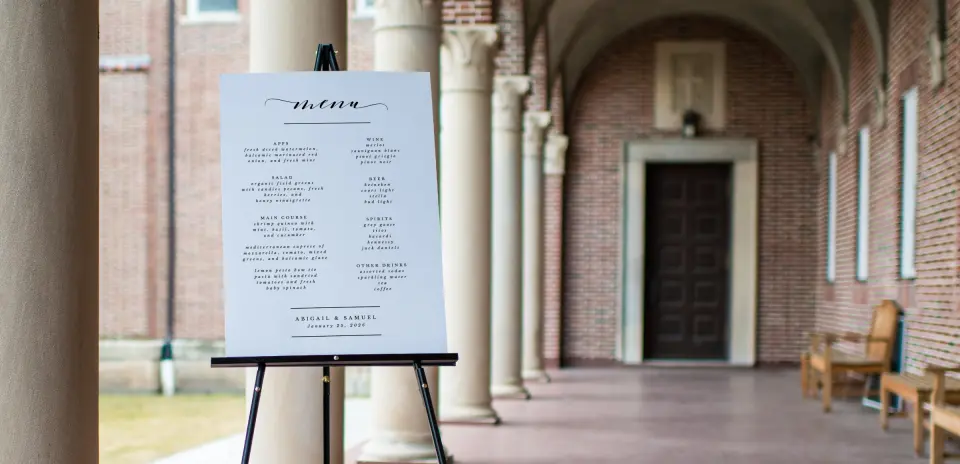 menu
APPS
fresh diced watermelon,
balsamic marinated red
onion, and fresh mint
SALAD
organic field greens
with candies pecans, fresh
berries, and
honey vinaigrette
MAIN COURSE
shrimp quinoa with
mint, basil, tomato,
and cucumber
mediterranean caprese of
mozzarella, tomato, mixed
greens, and balsamic glaze
lemon pesto bow tie
pasta with sundried
tomatoes and fresh
baby spinach
WINE
merlot
sauvignon blanc
pinot grigio
pinot noir
BEER
heineken
coors light
stella
bud light
SPIRITS
grey goose
titos
bacardi
hennessy
jack daniels
OTHER DRINKS
assorted sodas
sparkling water
tea
coffee
ABIGAIL & SAMUEL
January 20, 2020